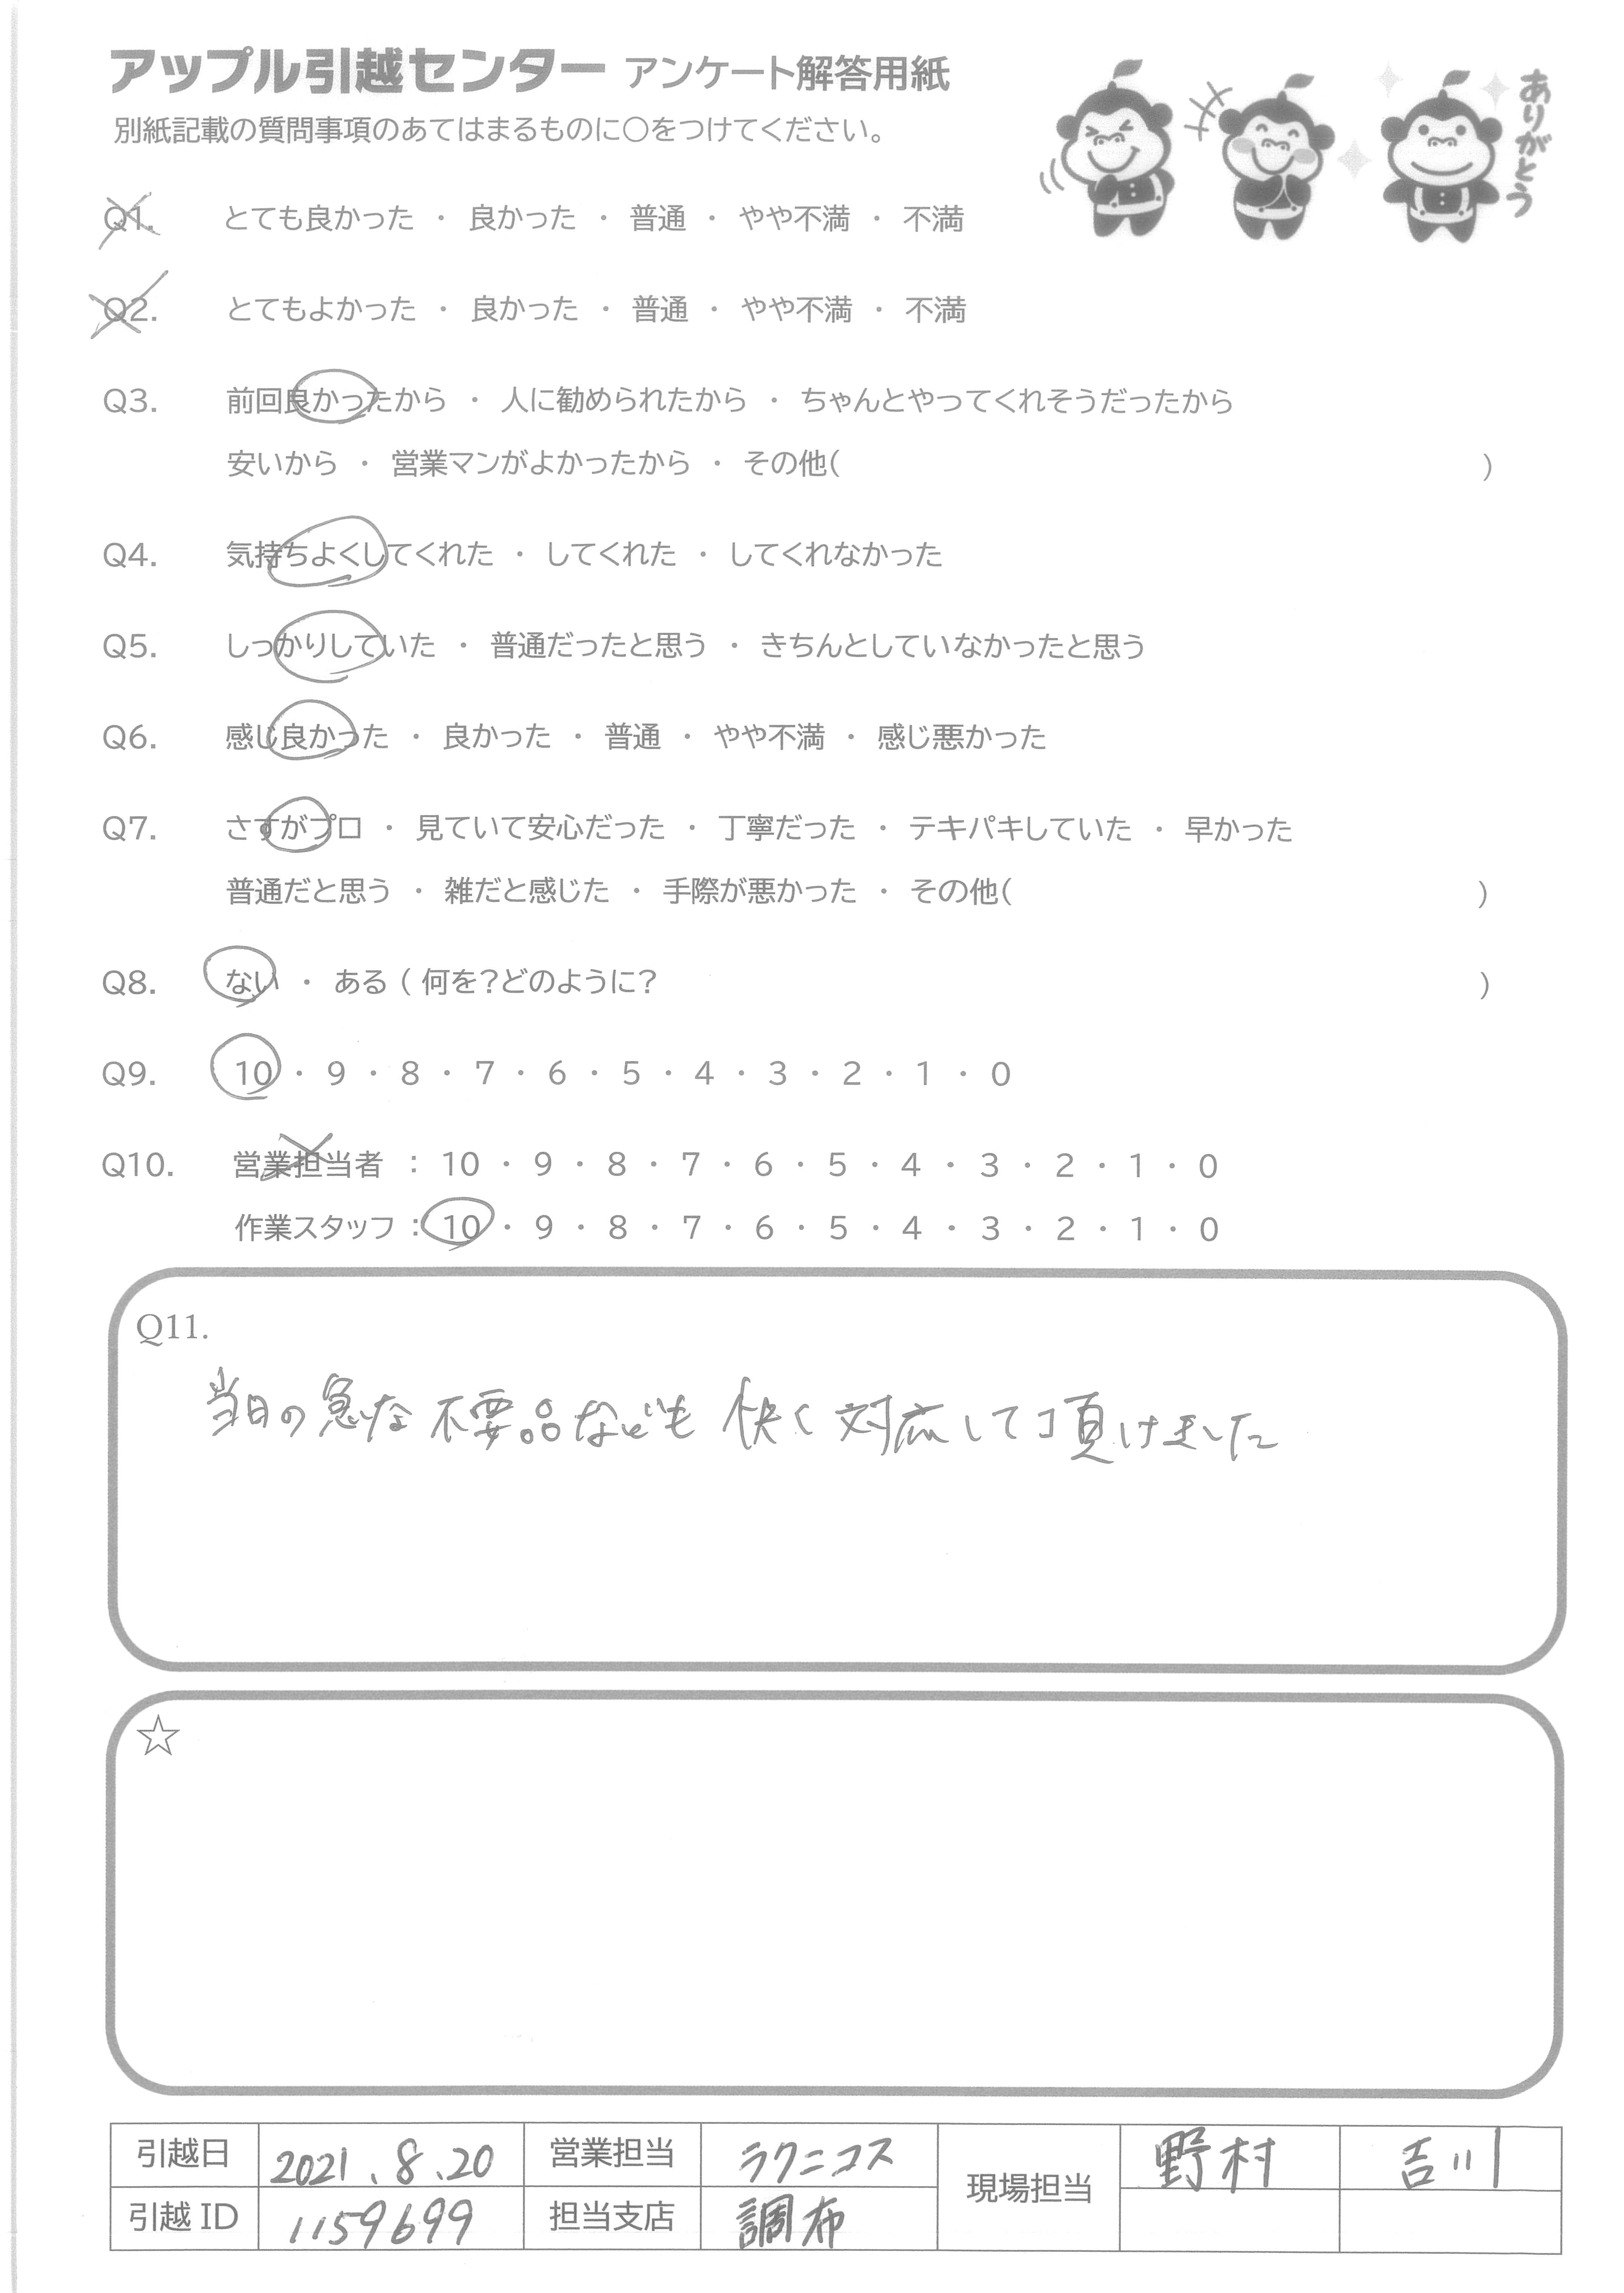 アップル引越センター アンケート解答用紙
ありがとう
別紙記載の質問事項のあてはまるものに○をつけてください。
Q1. とても良かった ・ 良かった ・ 普通 ・ やや不満 ・ 不満
Q2. とてもよかった ・ 良かった ・ 普通 ・ やや不満 ・ 不満
Q3. 前回良かったから ・ 人に勧められたから ・ ちゃんとやってくれそうだったから
安いから ・ 営業マンがよかったから ・ その他( )
Q4. 気持ちよくしてくれた ・ してくれた ・ してくれなかった
Q5. しっかりしていた ・ 普通だったと思う ・ きちんとしていなかったと思う
Q6. 感じ良かった ・ 良かった ・ 普通 ・ やや不満 ・ 感じ悪かった
Q7. さすがプロ ・ 見ていて安心だった ・ 丁寧だった ・ テキパキしていた ・ 早かった
普通だと思う ・ 雑だと感じた ・ 手際が悪かった ・ その他( )
Q8. ない ・ ある ( 何を?どのように? )
Q9. 10 ・ 9 ・ 8 ・ 7 ・ 6 ・ 5 ・ 4 ・ 3 ・ 2 ・ 1 ・ 0
Q10. 営業担当者 : 10 ・ 9 ・ 8 ・ 7 ・ 6 ・ 5 ・ 4 ・ 3 ・ 2 ・ 1 ・ 0
作業スタッフ : 10 ・ 9 ・ 8 ・ 7 ・ 6 ・ 5 ・ 4 ・ 3 ・ 2 ・ 1 ・ 0
Q11.
当日の急な不要品なども 快く対応して頂けました
☆
引越日 2021.8.20 営業担当 ラクニコス 現場担当 野村 吉川
引越ID 1159699 担当支店 調布